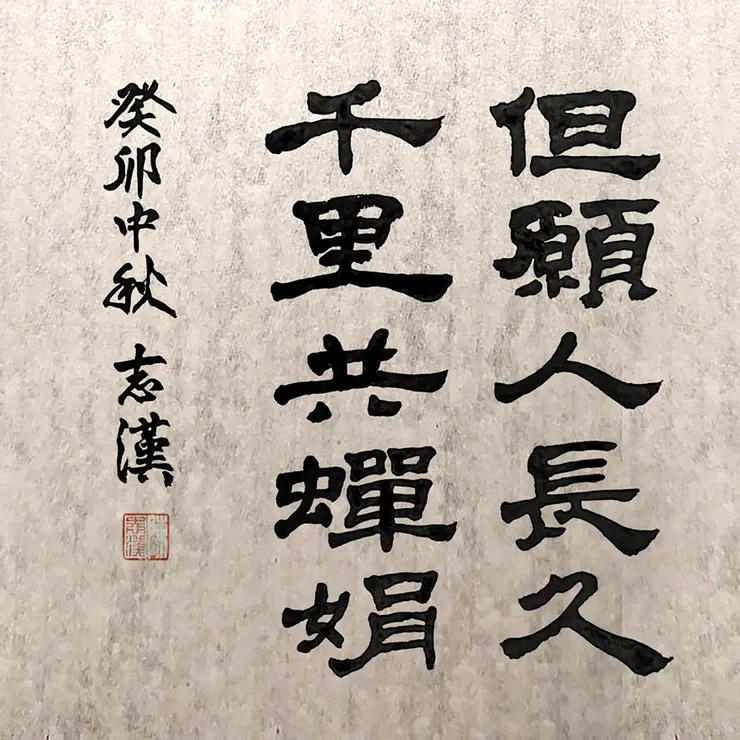 但願人長久
千里共蟬娟
癸卯中秋 志漢